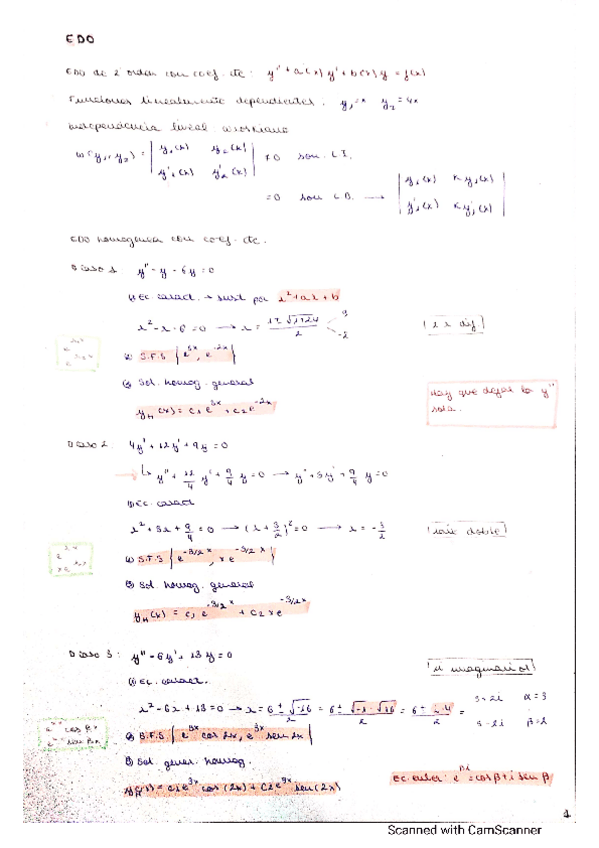 EDO
EDO de 2º orden con coef. cte: y'' + a(x) y' + b(x) y = f(x)
Funciones linealmente dependientes. y₁=x y₂=4x
Independencia lineal: wronskiano
W(y₁, y₂) = | y₁(x) y₂(x) | ≠0 son L I.
| y'₁(x) y'₂(x) |
=0 son L D. → | y₁(x) K y₁(x) |
| y'₁(x) K y'₁(x) |
EDO homogénea con coef. cte.
Caso 1 y'' - y - 6y = 0
(1) Ec. caract. → sust por λ² + aλ + b
λ² - λ - 6 = 0 → λ = (1 ± √(1+24))/2 3
-2
(λ λ dif.)
(2) S.F.S { e^3x, e^-2x }
(3) Sol. homog. general
y_H(x) = c₁e^3x + c₂e^-2x
Hay que dejar la y''
sola.
Caso 2: 4y'' + 12y' + 9y = 0
↳ y'' + 12/4 y' + 9/4 y = 0 → y'' + 3y' + 9/4 y = 0
(1) Ec. caract
λ² + 3λ + 9/4 = 0 → (λ + 3/2)² = 0 → λ = -3/2
raíz doble
(2) S.F.S { e^-3/2 x, x e^-3/2 x }
(3) Sol. homog. general
y_H(x) = c₁e^-3/2 x + c₂ x e^-3/2 x
Caso 3: y'' - 6y' + 13y = 0
λ imaginarios
(1) Ec. caract.
λ² - 6λ + 13 = 0 → λ = (6 ± √-16)/2 = (6 ± √-1 · √16)/2 = (6 ± i·4)/2 = 3+2i α=3
3-2i β=2
e^αx cos βx
e^αx sen βx
(2) S.F.S. { e^3x cos 2x, e^3x sen 2x }
(3) Sol. gener. homog.
y_H(x) = c₁e^3x cos (2x) + c₂e^3x sen (2x)
ec. euler: e^βi = cos β + i sen β
1
Scanned with CamScanner